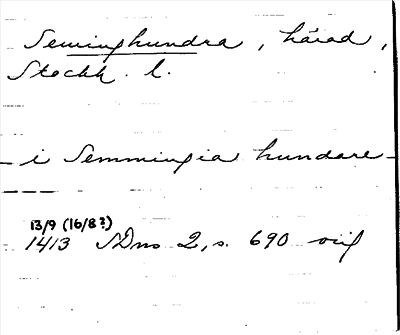 Seminghundra, härad,
Stockh. l.
i Semmingia hundare
13/9 (16/8?)
1413 SDns 2, s. 690 orig